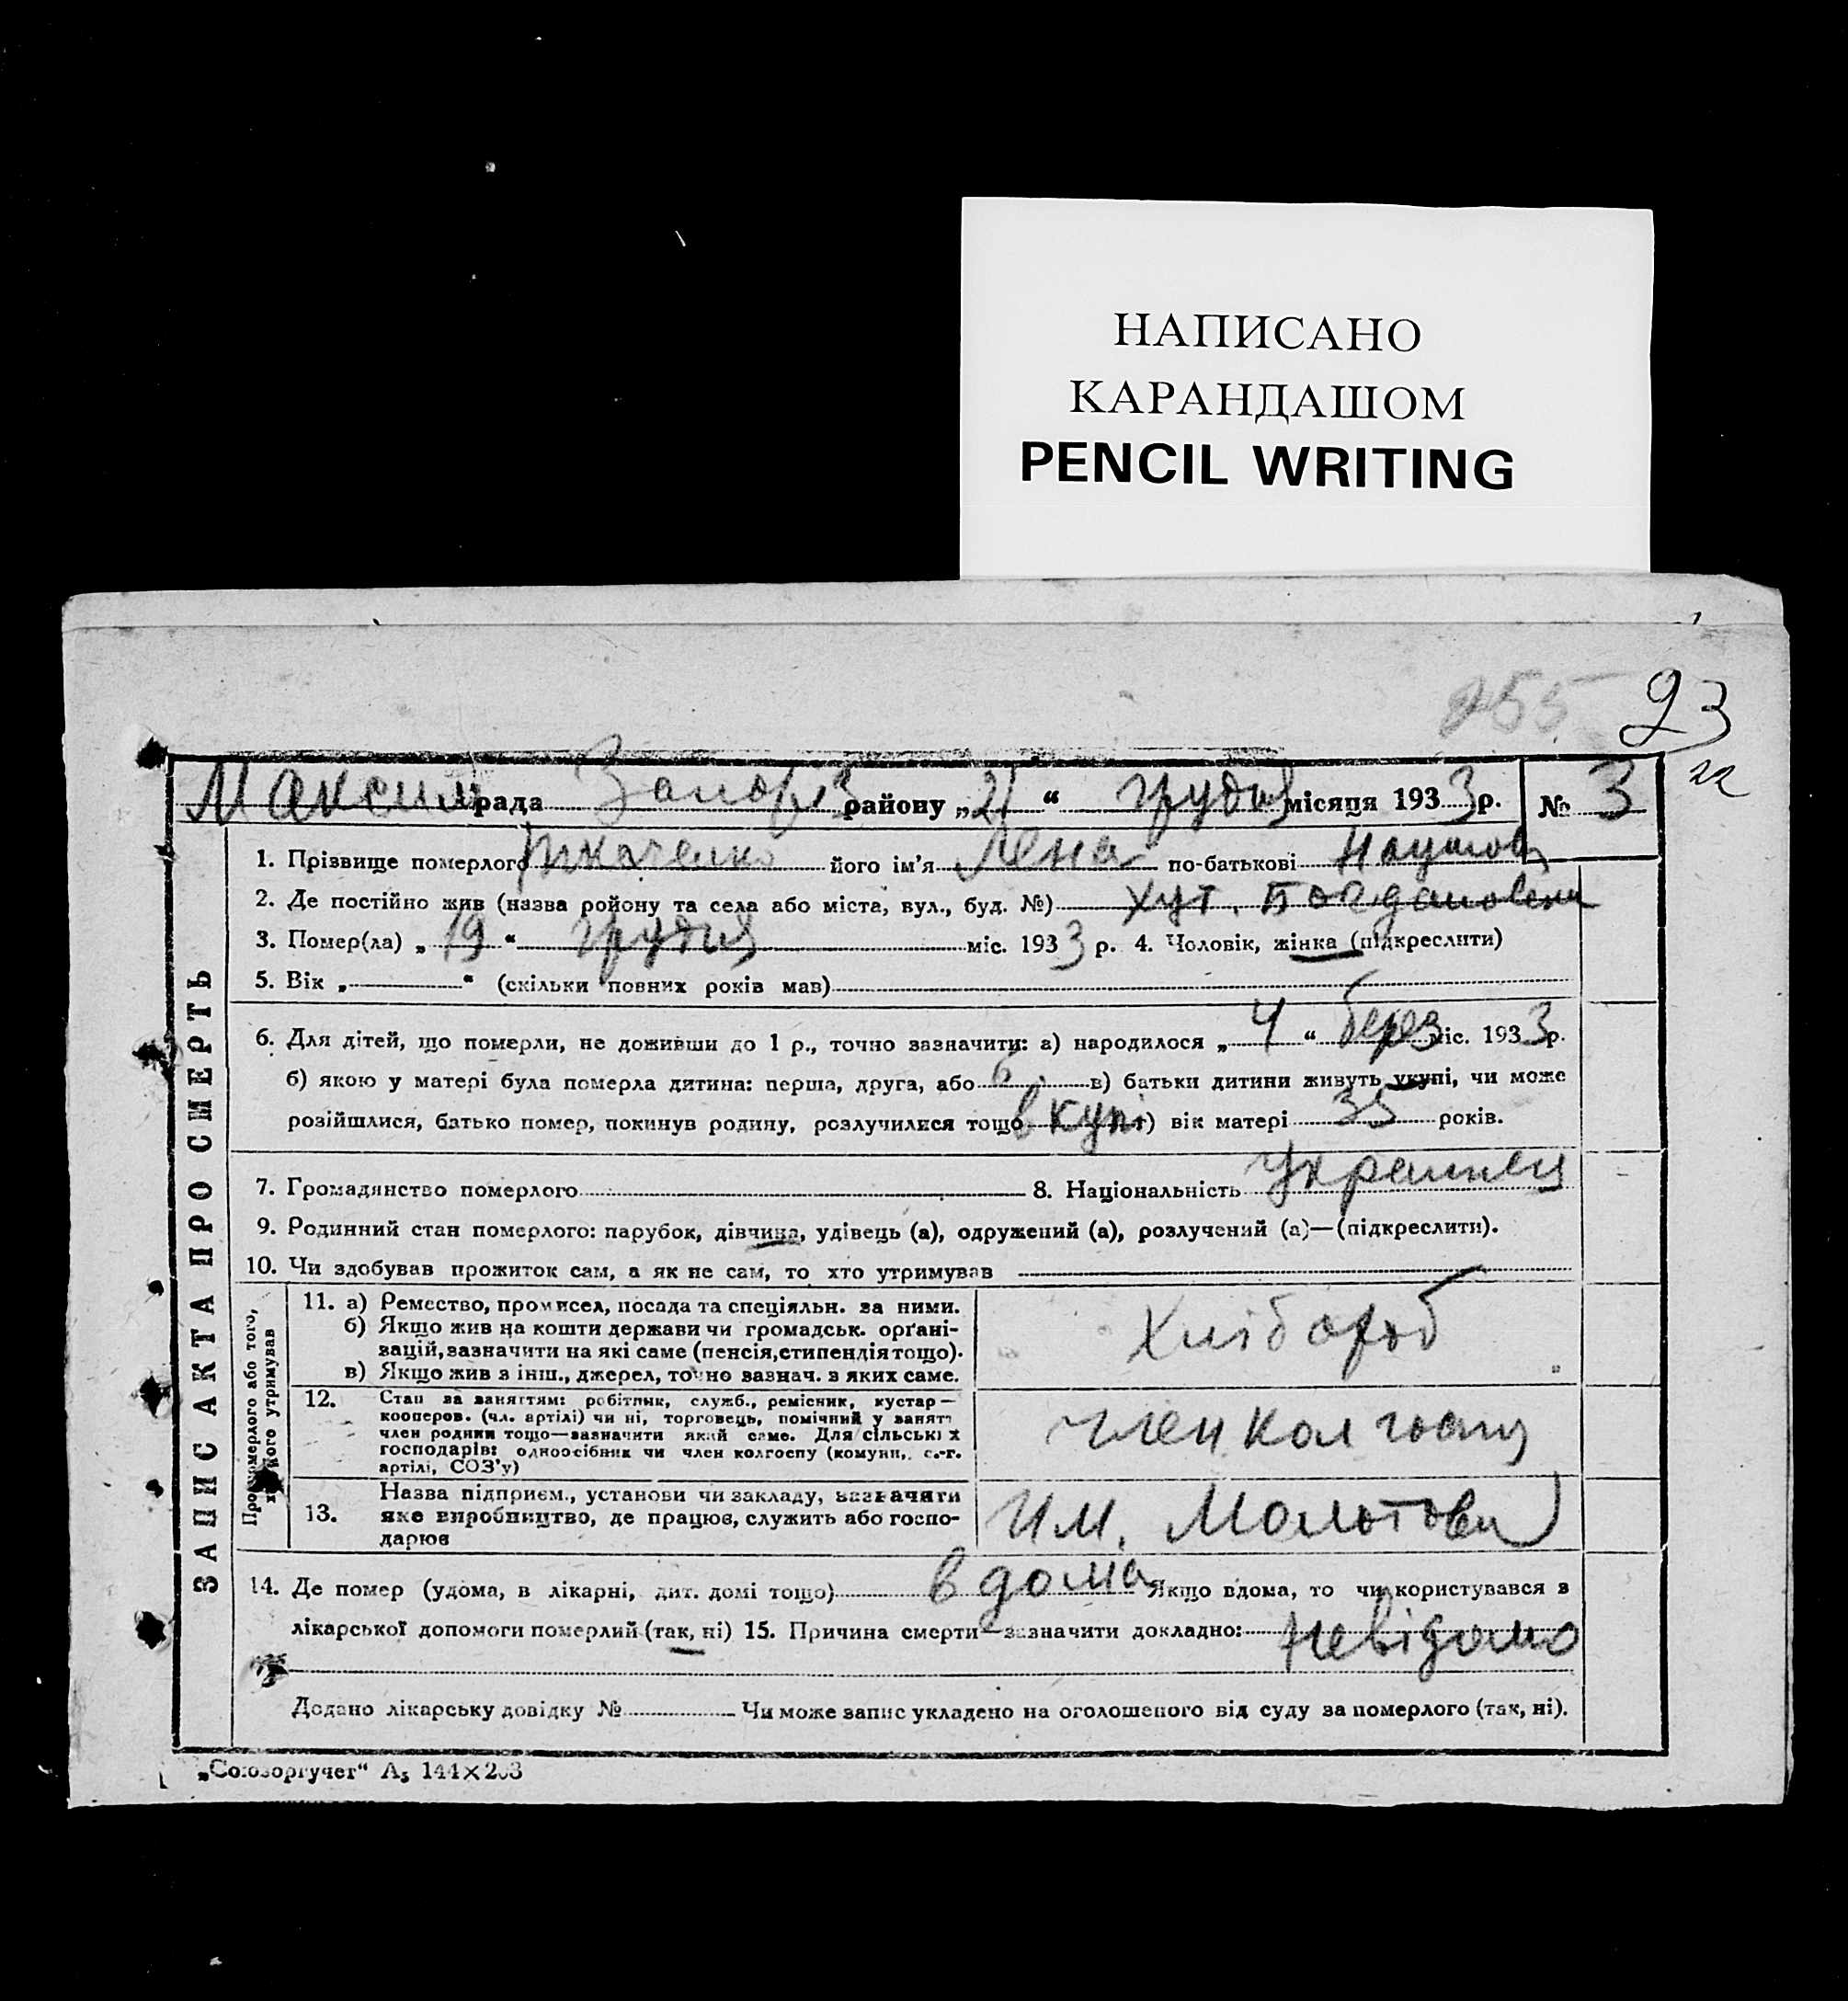 НАПИСАНО
КАРАНДАШОМ
PENCIL WRITING
255 93
22
Максим рада Запоріз району „21“ грудня місяця 1933 р. № 3
1. Прізвище померлого Ткаченко його ім'я Лена по-батькові Наумов
2. Де постійно жив (назва ройону та села або міста, вул., буд. №) хут.
3. Помер(ла) „19“ грудня міс. 1933 р. 4. Чоловік, жінка (підкреслити)
5. Вік „ “ (скільки повних років мав)
6. Для дітей, що померли, не доживши до 1 р., точно зазначити: а) народилося „4“ берез міс. 1933 р.
б) якою у матері була померла дитина: перша, друга, або 6. в) батьки дитини живуть укупі, чи може
розійшлися, батько помер, покинув родину, розлучилися тощо вкупі г) вік матері 35 років.
7. Громадянство померлого 8. Національність
9. Родинний стан померлого: парубок, дівчина, удівець (а), одружений (а), розлучений (а)—(підкреслити).
10. Чи здобував прожиток сам, а як не сам, то хто утримував
ЗАПИС АКТА ПРО СМЕРТЬ
Про померлого або того,
хто його утримував
11. а) Ремество, промисел, посада та спеціяльн. за ними.
б) Якщо жив на кошти держави чи громадськ. орґані-
зацій, зазначити на які саме (пенсія, стипендія тощо).
в) Якщо жив з інш., джерел, точно зазнач. з яких саме.
Хлібороб
12. Стан за заняттям: робітник, служб., ремісник, кустар—
кооперов. (чл. артілі) чи ні, торговець, помічний у занятт
член родини тощо—зазначити який саме. Для сільських
господарів: одноосібник чи член колгоспу (комуни, с.-г.
артілі, СОЗ'у)
член колгоспу
13. Назва підприєм., установи чи закладу, зазначити
яке виробництво, де працюв, служить або госпо-
дарюв
Им. Молотова
14. Де помер (удома, в лікарні, дит. домі тощо) вдома Якщо вдома, то чи користувався з
лікарської допомоги померлий (так, ні) 15. Причина смерти—зазначити докладно: невідомо
Додано лікарську довідку № Чи може запис укладено на оголошеного від суду за померлого (так, ні).
„Союзоргучет“ А5 144×203